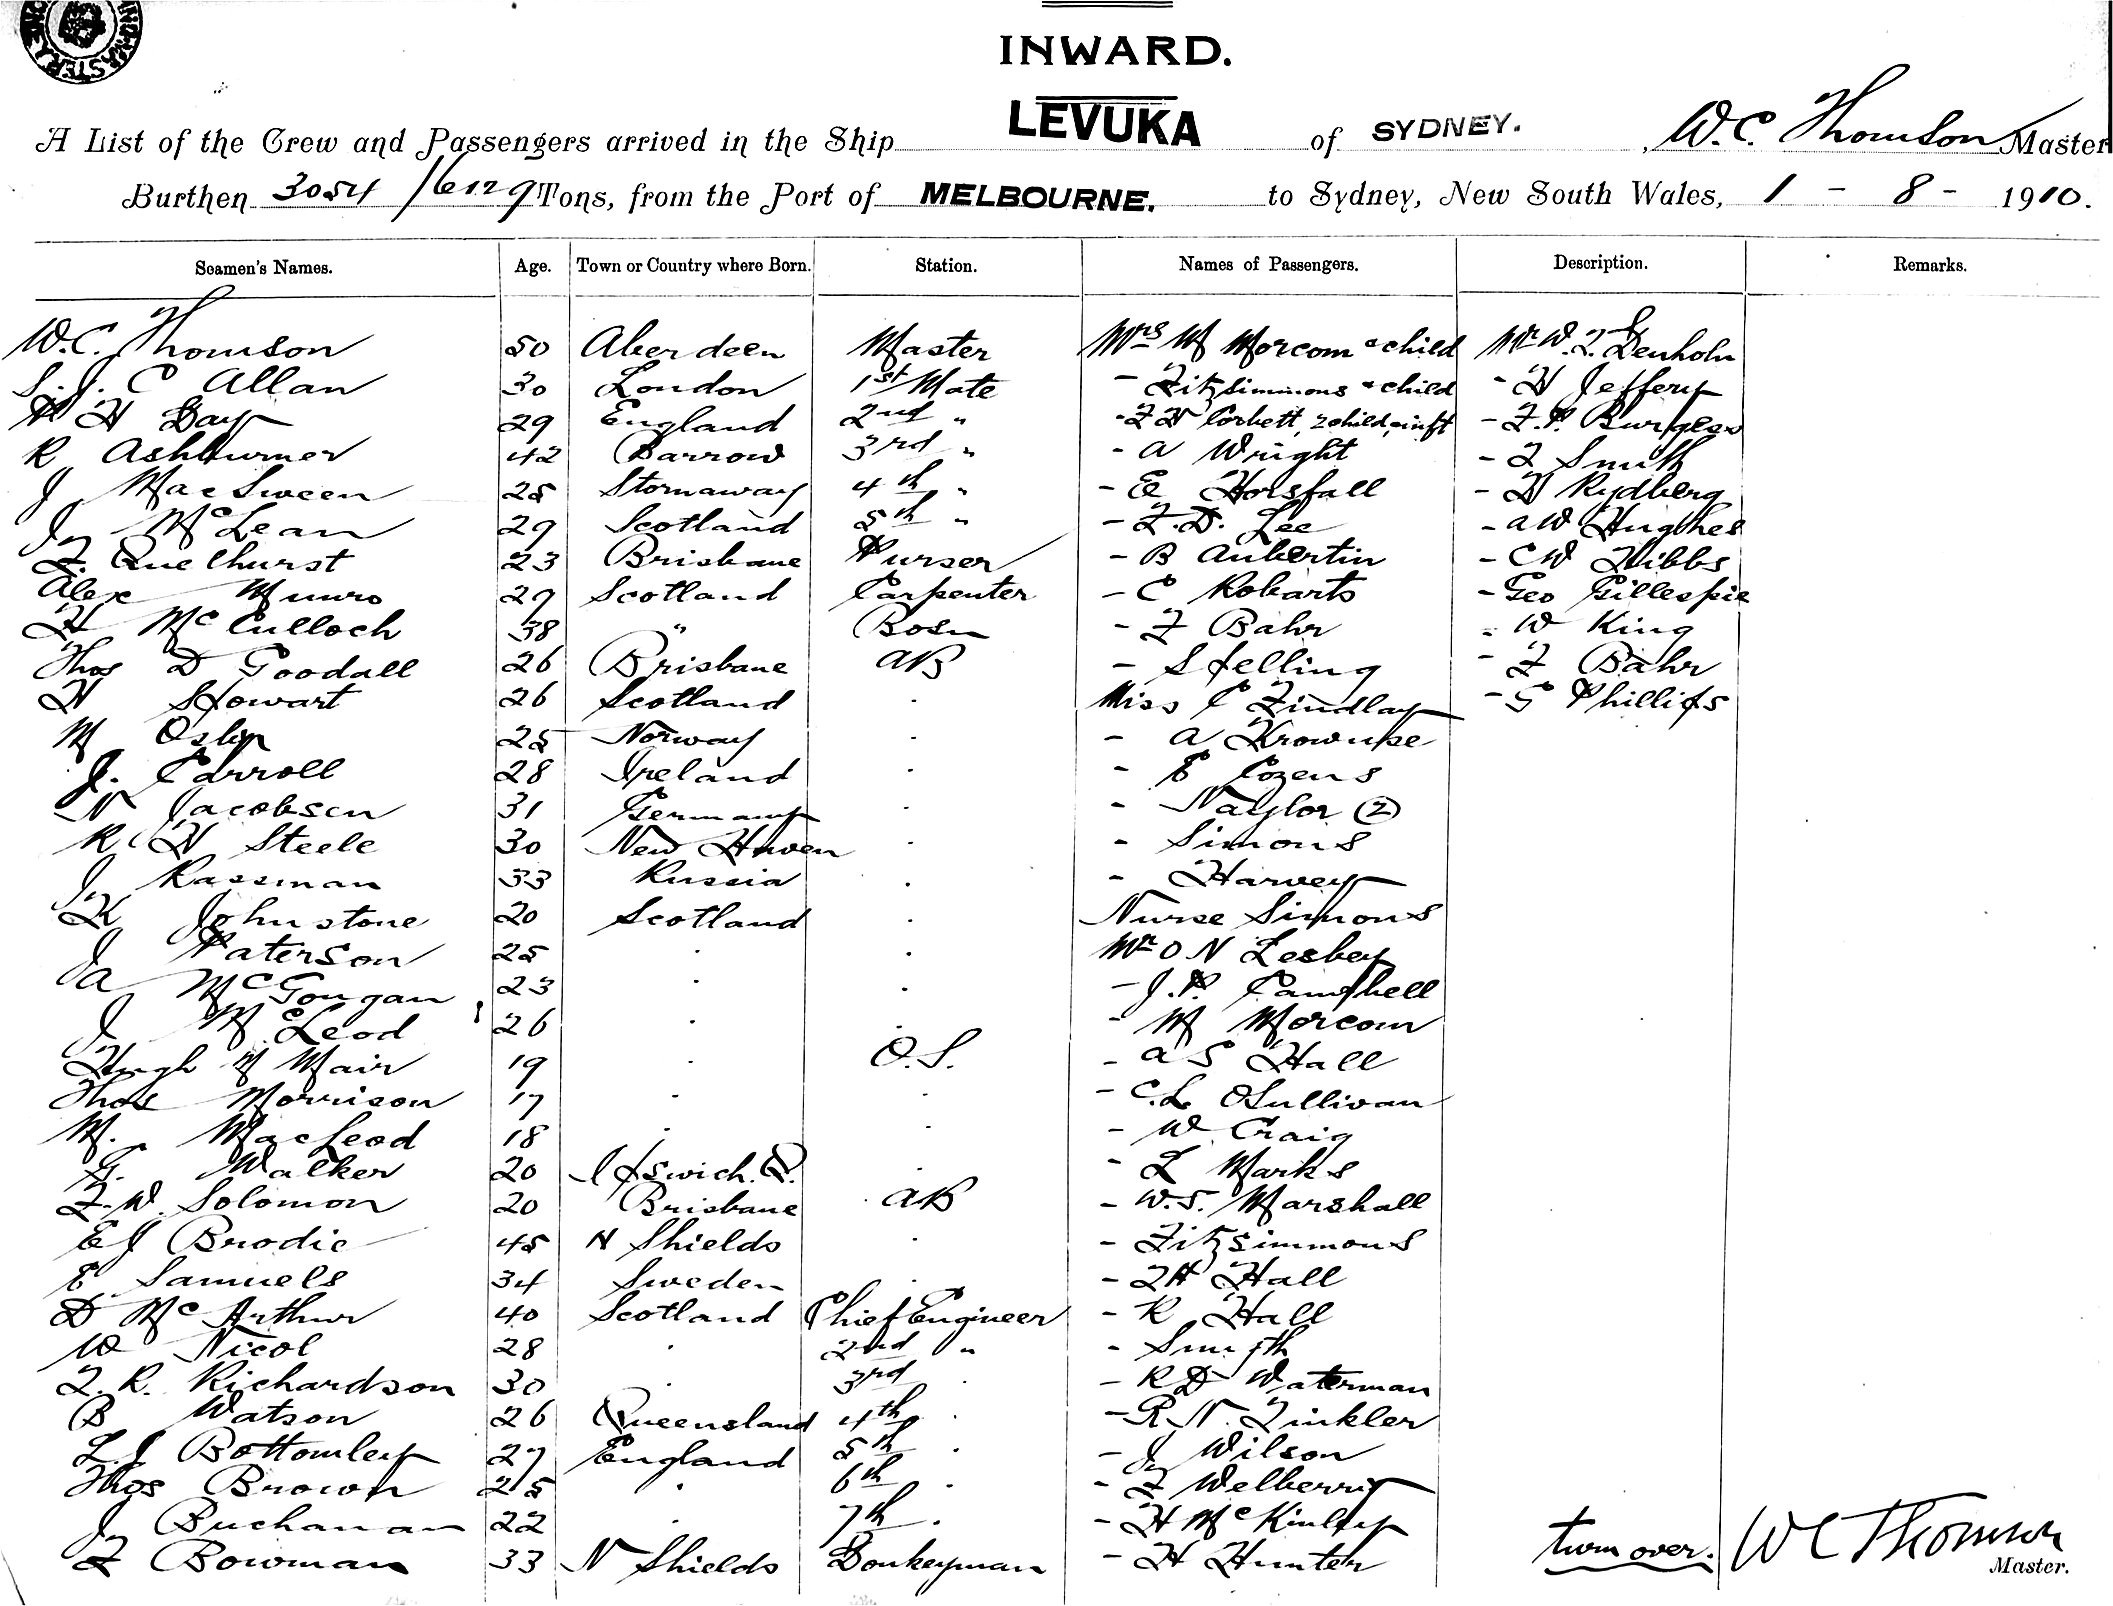 INWARD.
A List of the Crew and Passengers arrived in the Ship LEVUKA of SYDNEY. W.C. Thomson Master
Burthen 3054 / 6129 Tons, from the Port of MELBOURNE. to Sydney, New South Wales, 1 - 8 - 1910.
Seamen's Names. Age. Town or Country where Born. Station. Names of Passengers. Description. Remarks.
W.C. Thomson 50 Aberdeen Master Mrs M Morcom & child Mr W. Denholm
C Allan 30 London 1st Mate - Fitzsimmons & child - H Jeffery
H Day 29 England 2nd " - F H Corbett, 2 child, inft - F.P. Burgess
R Ashburner 42 Barrow 3rd " - A Wright - F Smith
J MacSween 25 Stornaway 4th " - E Horsfall - H Rydberg
J McLean 29 Scotland 5th " - F.D. Lee - A W Hughes
F. Quelhurst 23 Brisbane Purser - B Aubertin - C W Hibbs
Alex Munro 29 Scotland Carpenter - C Robarts - Geo Gillespie
H McCulloch 38 " Bosn - F Bahr - W King
Thos D Goodall 26 Brisbane AB - Spelling - F Bahr
H Stowart 26 Scotland Miss C Findlay - G Phillips
M 25 Norway - A
J. Carroll 28 Ireland - E Cozens
N Jacobsen 31 Germany - Naylor (2)
R H Steele 30 New Haven - Simons
J Rassman 33 Russia - Harvey
K Johnstone 20 Scotland Nurse Simons
J Paterson 25 Mr O N Lesbey
A McGougan 23 - J.P. Campbell
J McLeod 26 - M Morcom
Hugh M Mair 19 O.S. - A S Hall
Thos Morrison 17 - C.L OSullivan
M. MacLeod 18 - W Craig
G. Walker 20 Ipswich. Q. - L Marks
F.W. Solomon 20 Brisbane AB - W.S. Marshall
E J Brodie 45 N Shields - Fitzsimmons
E Samuels 34 Sweden - F H Hall
D McArthur 40 Scotland Chief Engineer - R Hall
W Nicol 28 2nd " - Smyth
F. R. Richardson 30 3rd - R D Waterman
B Watson 26 Queensland 4th - R. N. Tinkler
L.J Bottomley 27 England 5th - J Wilson
Thos Brown 25 6th - F Welberry
J Buchanan 22 7th - H McKinley
F Bowman 33 N Shields Donkeyman - H Hunter
turn over. W C Thomson
Master.